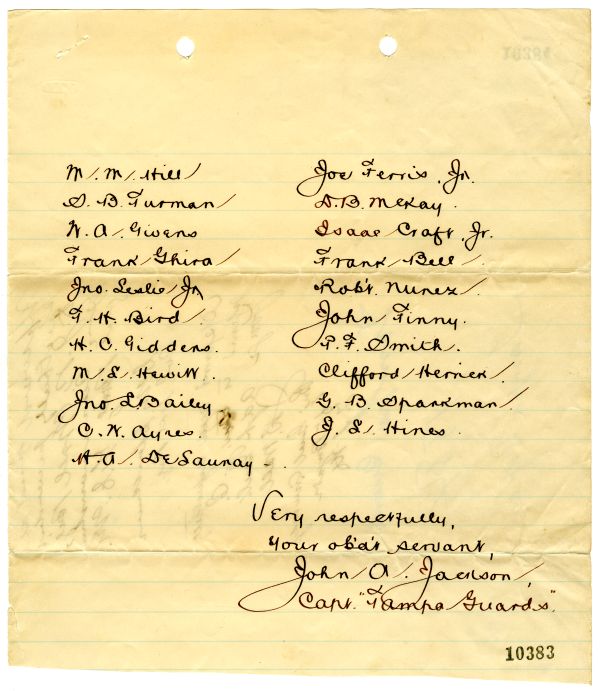 M. M. Hill
S. B. Turman
W. A. Givens
Frank Ghira
Jno. Leslie Jr
T. H. Bird.
H. C. Giddens.
M. E. Hewitt.
Jno. L. Bailey
C. W. Ayres.
H. A. DeLaunay -.
Joe Ferris, Jr.
D. B. McKay.
Isaac Craft, Jr.
Frank Bell.
Rob't. Nunez.
John Finny.
P. F. Smith.
Clifford Herrick.
G. B. Sparkman.
J. L. Hines.
Very respectfully,
Your ob'd't servant,
John A. Jackson,
Capt. "Tampa Guards".
10383